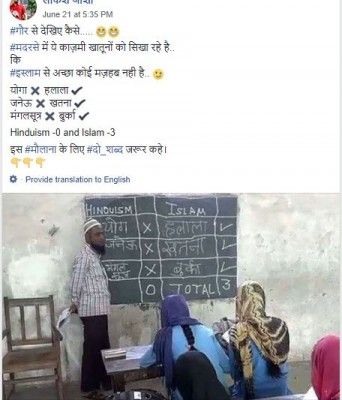 June 21 at 5:35 PM
#गौर से देखिए कैसे.....
#मदरसे में ये काज़मी खातूनों को सिखा रहे है..
कि
#इस्लाम से अच्छा कोई मज़हब नही है..
योगा ❌ हलाला ✔
जनेऊ ❌ खतना ✔
मंगलसूत्र ❌ बुर्का ✔
Hinduism -0 and Islam -3
इस #मौलाना के लिए #दो_शब्द जरूर कहे।
Provide translation to English
HINDUISM ISLAM
योग X हलाला ✓
जनेऊ X खतना ✓
मंगल सूत्र X बुर्का ✓
0 TOTAL 3